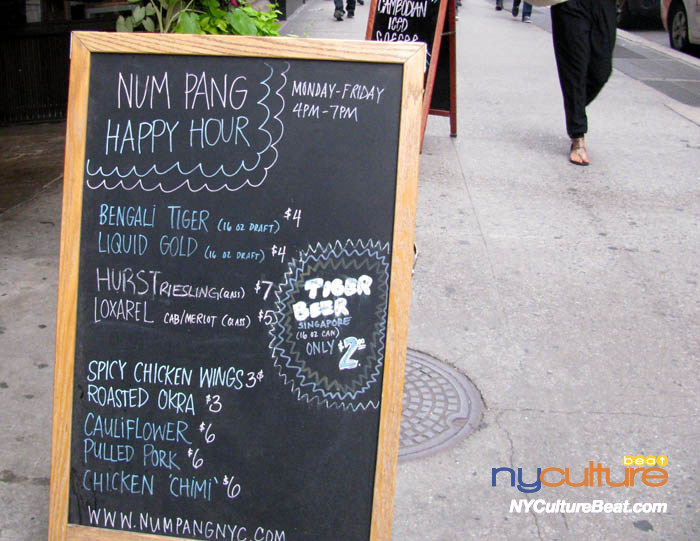 CAMBODIAN
ICED
COFFEE
NUM PANG
HAPPY HOUR
MONDAY-FRIDAY
4PM-7PM
BENGALI TIGER (16 OZ DRAFT) $4
LIQUID GOLD (16 OZ DRAFT) $4
HURST RIESLING (GLASS) $7
LOXAREL CAB/MERLOT (GLASS) $5
TIGER
BEER
SINGAPORE
(16 OZ CAN)
ONLY $2.00
SPICY CHICKEN WINGS 3$
ROASTED OKRA $3
CAULIFLOWER $6
PULLED PORK $6
CHICKEN 'CHIMI' $6
WWW.NUMPANGNYC.COM
nyculture beat
NYCultureBeat.com